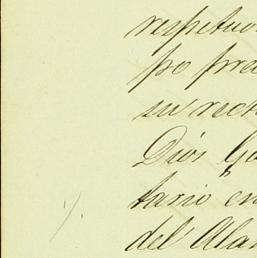 respetuo
po pre
su rec
Dios Gu
tario en
del Ala